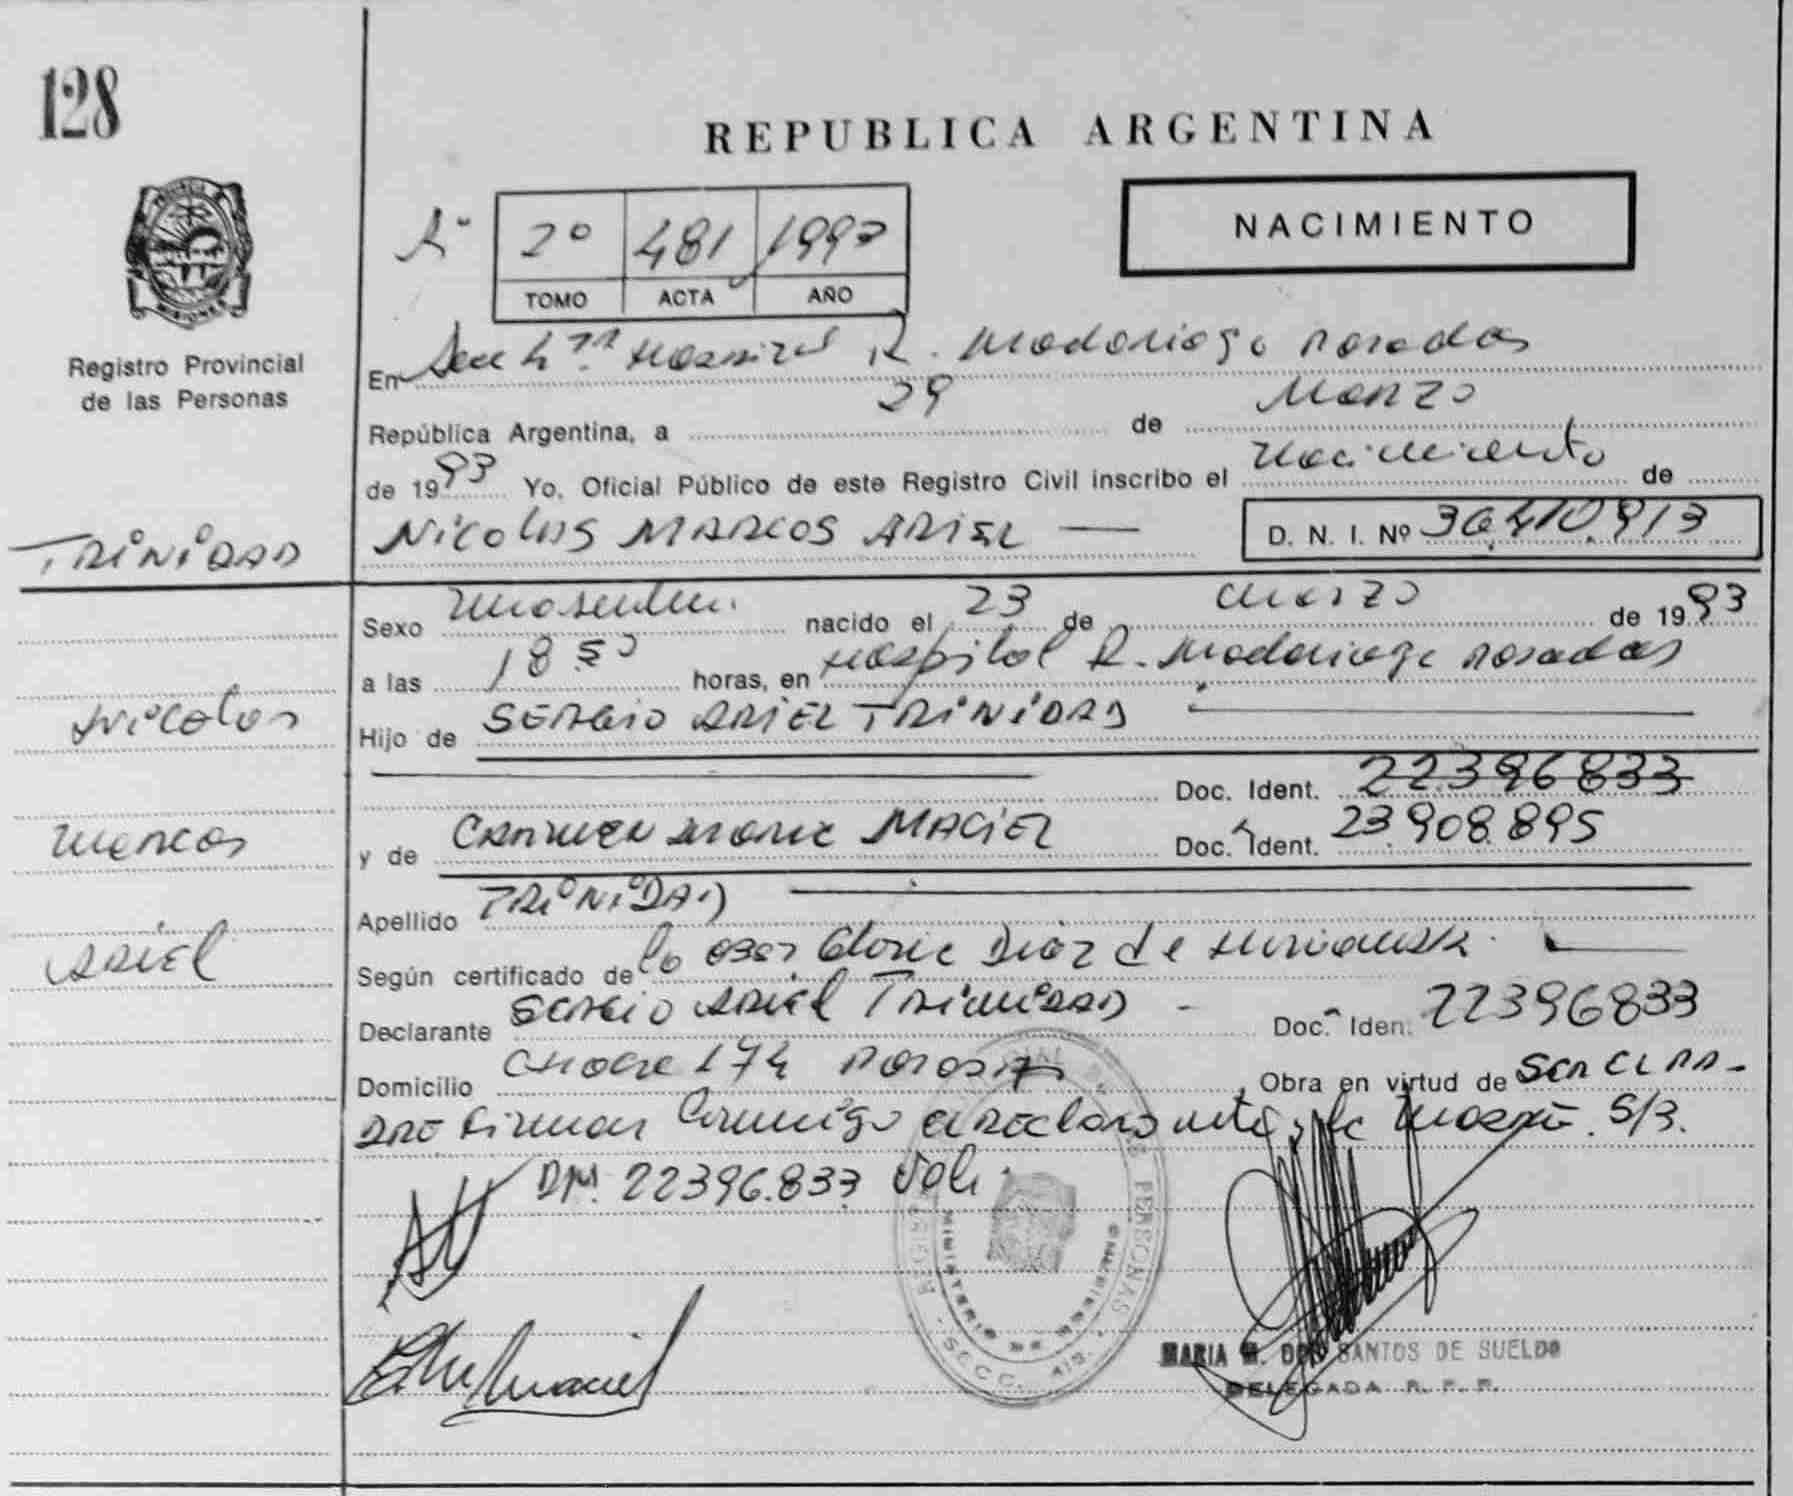 128
REPUBLICA ARGENTINA
NACIMIENTO
2º 481 1993
TOMO ACTA AÑO
Registro Provincial
de las Personas
En Hospital R. Madariaga Posadas
República Argentina, a 29 de Marzo
de 1993 Yo, Oficial Público de este Registro Civil inscribo el Nacimiento de
TRINIDAD
NICOLAS MARCOS ARIEL D. N. I. Nº
Sexo Masculino nacido el 23 de Marzo de 1993
a las 18 50 horas, en Hospital R. Madariaga Posadas
Nicolas
Hijo de SERGIO ARIEL TRINIDAD
Doc. Ident. 22396833
Marcos
y de CARMEN MACIEL Doc. Ident. 23.908.895
Apellido TRINIDAD
Ariel
Según certificado de la Diaz de
Declarante SERGIO ARIEL TRINIDAD Doc. Iden. 22396833
Domicilio 174 Obra en virtud de
Firman Conmigo el Declarante y la
DNI. 22396.833
REGISTRO DE PERSONAS
MINISTERIO DE GOBIERNO
MARIA M. DOS SANTOS DE SUELDO
DELEGADA R. P. P.